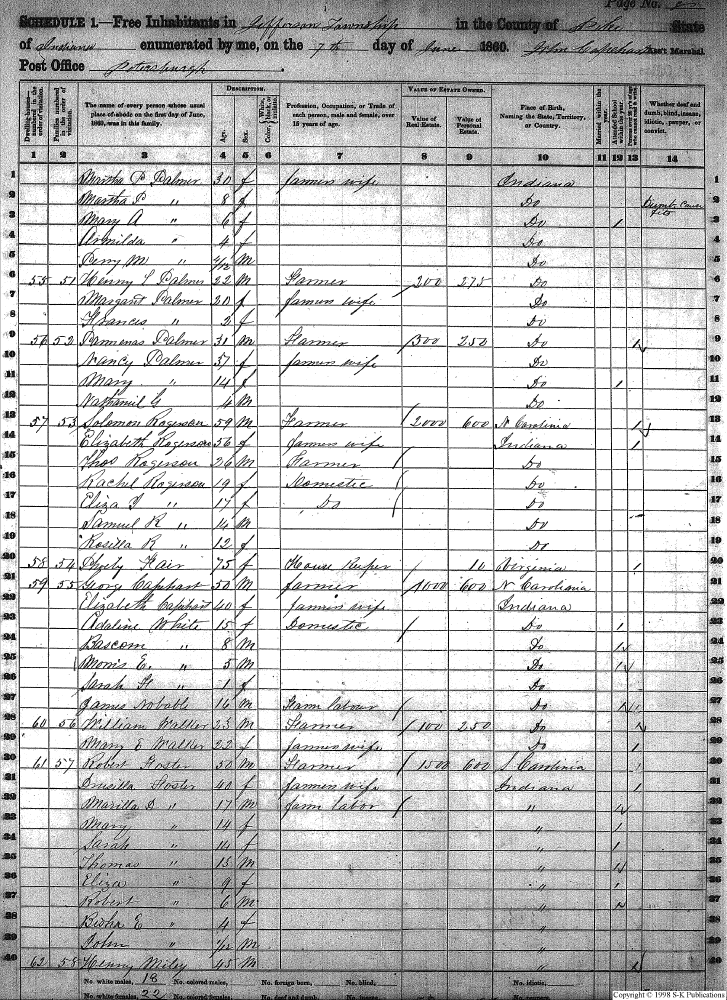 Page No.
SCHEDULE 1.—Free Inhabitants in Jefferson Township in the County of Pike State
of Indiana enumerated by me, on the 7th day of June 1860. John Capehart Ass't Marshal
Post Office Petersburgh.
DESCRIPTION. VALUE OF ESTATE OWNED.
Dwelling-houses numbered in the order of visitation. Families numbered in the order of visitation. The name of every person whose usual place of abode on the first day of June, 1860, was in this family. Age. Sex. Color, White, black, or mulatto. Profession, Occupation, or Trade of each person, male and female, over 15 years of age. Value of Real Estate. Value of Personal Estate. Place of Birth, Naming the State, Territory, or Country. Married within the year. Attended School within the year. Whether deaf and dumb, blind, insane, idiotic, pauper, or convict.
1 2 3 4 5 6 7 8 9 10 11 12 13 14
1 Martha P Palmer 30 f farmers wife Indiana
2 Martha P " 8 f Do Dumb
3 Mary A " 6 f Do / 3
4 Armilda " 4 f Do 4
5 Perry M " M Do 5
6 55 51 Henry S Palmer 22 M Farmer 200 275 Do 6
7 Margaret Palmer 20 f farmers wife Do 7
8 Frances " 2 f Do 8
9 56 52 Parmenas Palmer 31 M Farmer 300 250 Do / 9
10 Nancy Palmer 37 f farmers wife Do 10
11 Mary " 14 f Do / 11
12 Nathaniel G 4 M Do 12
13 57 53 Solomon Rogerson 59 M Farmer 2000 600 N Carolina / 13
14 Elizabeth Rogerson 56 f farmers wife Indiana / 14
15 Thos Rogerson 26 M Farmer Do 15
16 Rachel Rogerson 19 f Domestic Do 16
17 Eliza J " 17 f Do Do 17
18 Samuel R " 14 M Do 18
19 Rosilla R " 12 f Do 19
20 58 54 Hair 75 f House Keeper 10 Virginia / 20
21 59 55 George Capehart 50 M farmer 1000 600 N Carolinia 21
22 Elizabeth Capehart 40 f farmers wife Indiana 22
23 Adaline White 15 f Domestic Do / 23
24 Bascom " 8 M Do / 24
25 Morris E. " 5 M Do / 25
26 Sarah H " 1 f Do 26
27 James Nobable 16 M Farm labour Do / 27
28 60 56 William Walker 23 M Farmer 100 250 Do / 28
29 Mary E Walker 22 f farmers wife Do / 29
30 61 57 Robert Foster 50 M Farmer 1500 600 S Carolinia / 30
31 Drusilla Foster 40 f farmers wife Indiana / 31
32 Marilla D " 17 M farm labor " / 32
33 Mary " 14 f " / 33
34 Sarah " 14 f " / 34
35 Thomas " 13 M " / 35
36 Eliza " 9 f " / 36
37 Robert " 6 M " / 37
38 E " 4 f " 38
39 John " M " 39
40 62 58 Henry Miley 45 M " / 40
No. white males, 18 No. colored males, No. foreign born, No. blind, No. idiotic,
No. white females, 22 No. colored females, No. deaf and dumb, No. insane,
Copyright © 1998 S-K Publications